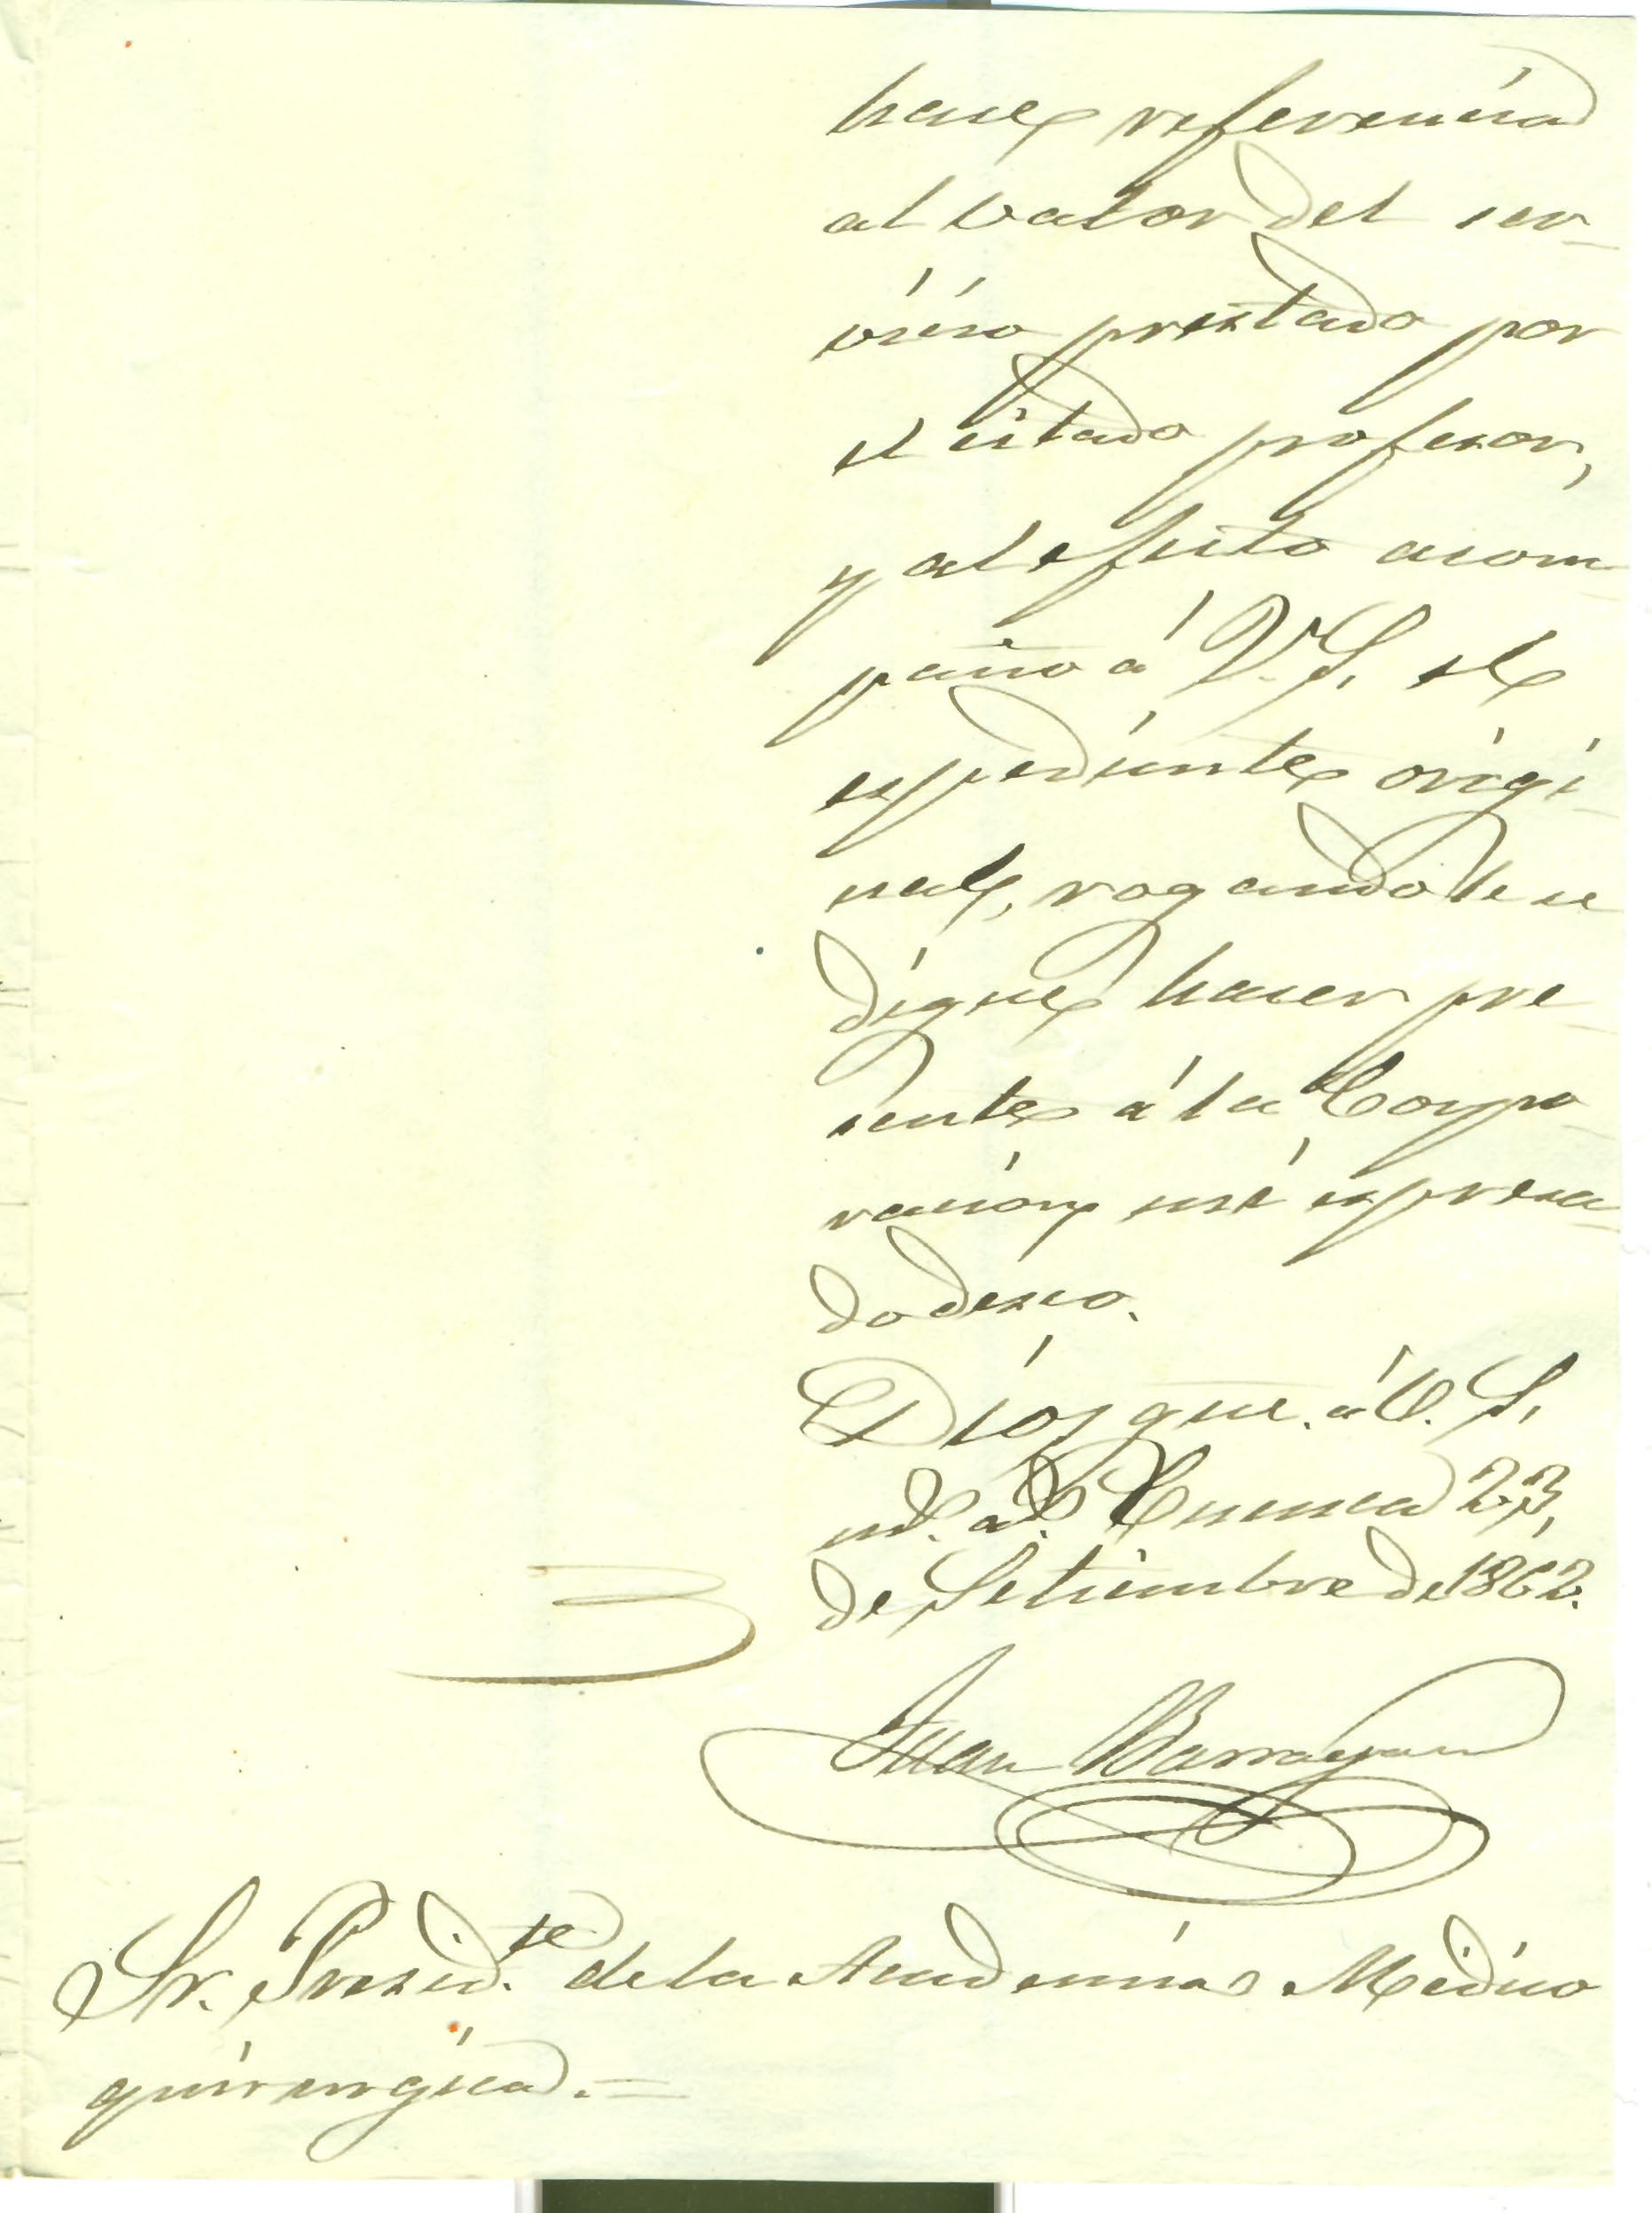 hace referencia
al valor del ser-
vicio prestado por
el citado profesor,
y al efecto acom-
paño á V. S. el
espediente origi-
nal, rogandole se
digne hacer pre-
sente á la Corpo-
racion mi espresa-
do deseo.
Dios gue. á V. S.
ms. as. Cuenca 23,
de Setiembre de 1862.
Juan Barragan
Sr. Presid.te de la Academia Medico
quirurgica.=